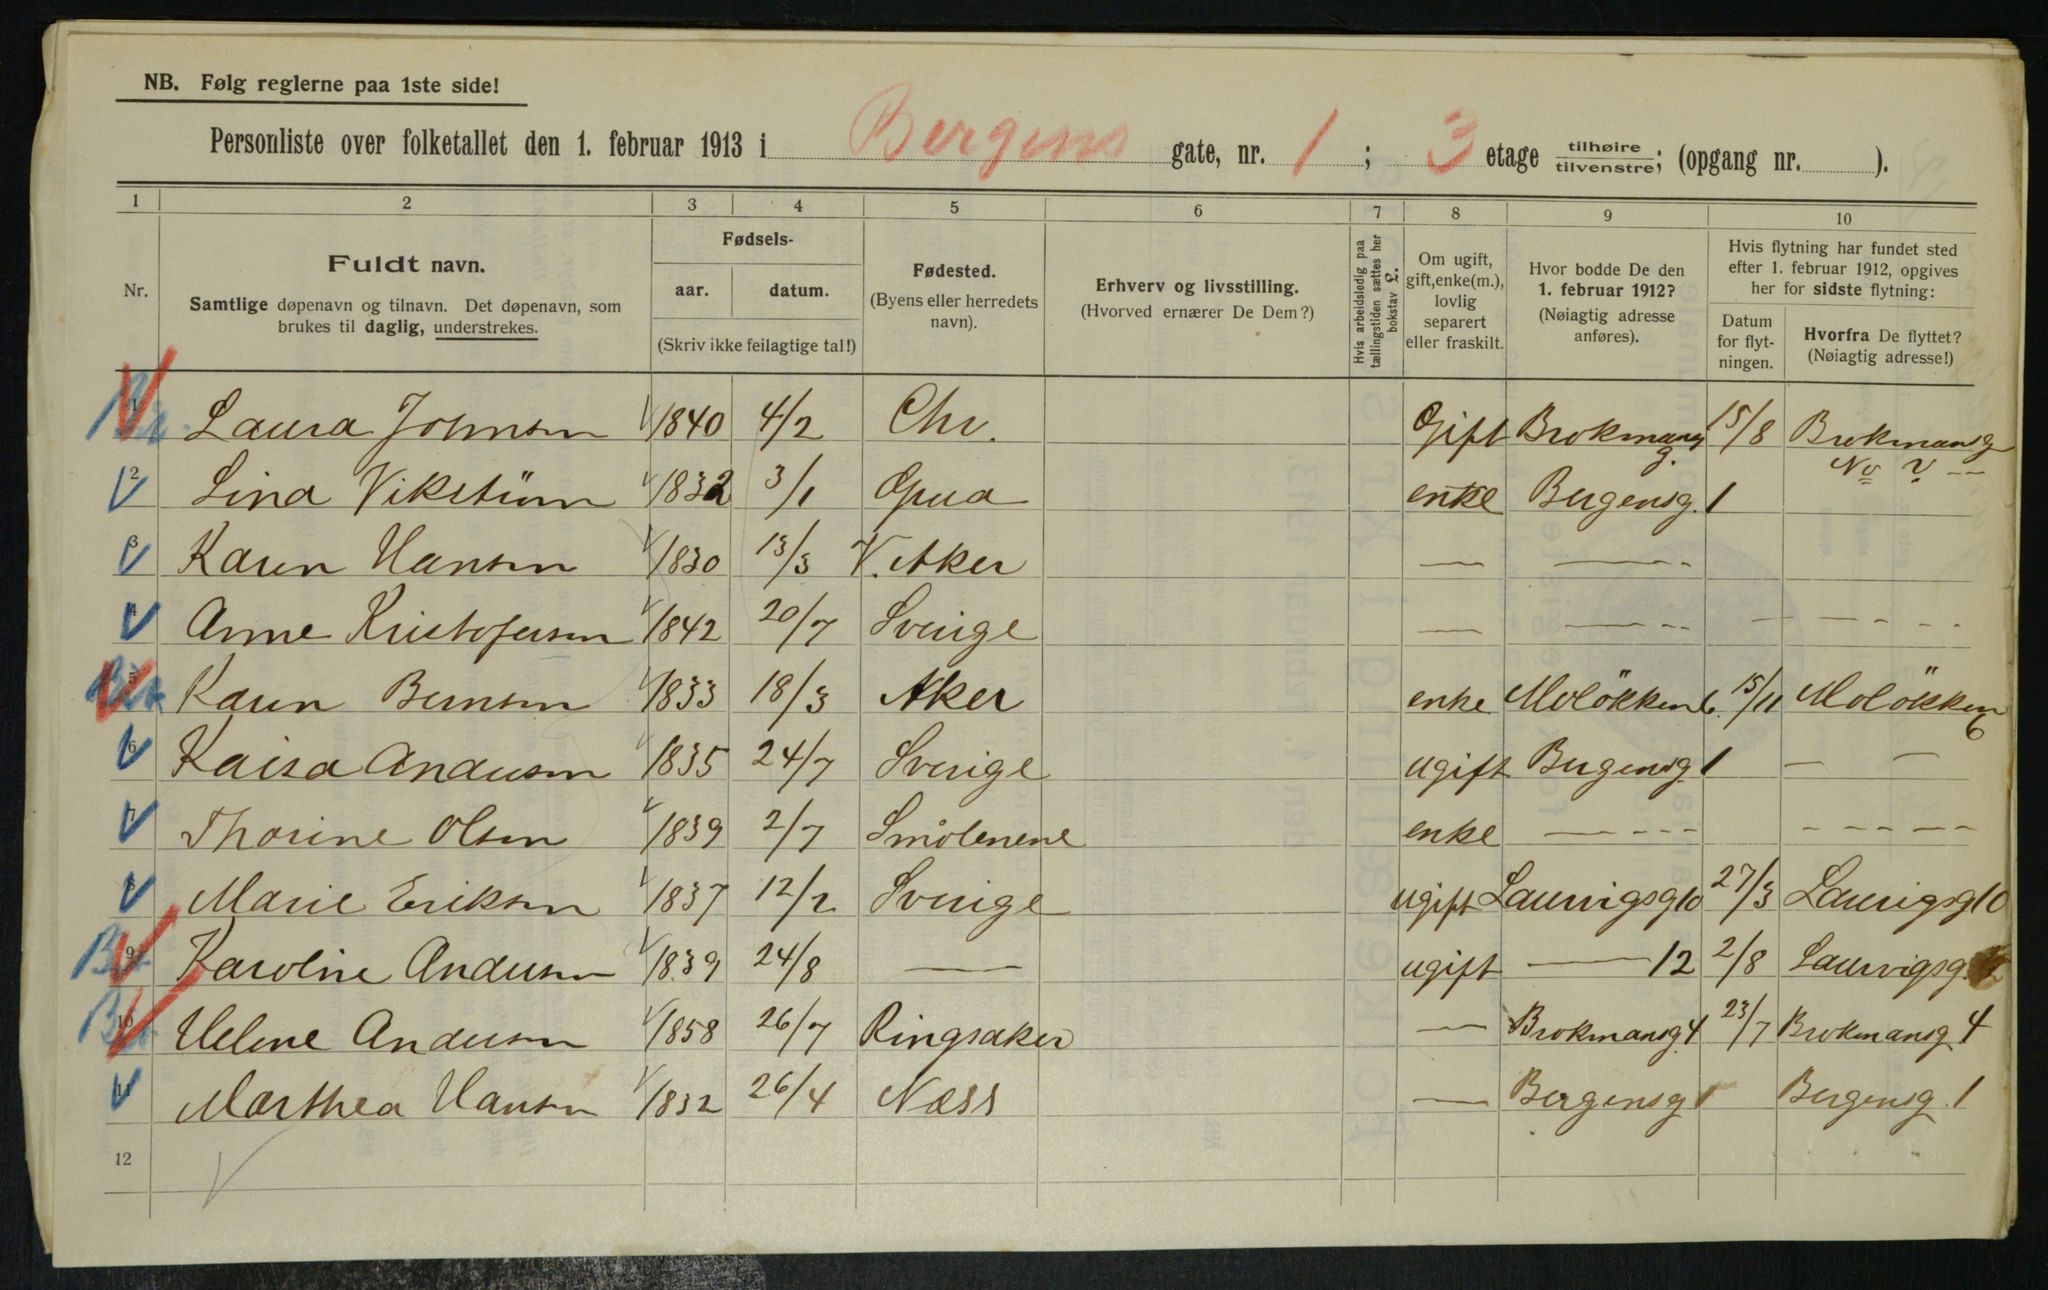 NB. Følg reglerne paa 1ste side!
Personliste over folketallet den 1. februar 1913 i Bergens gate, nr. 1 ; 3 etage tilhøire tilvenstre; (opgang nr. ).
1 2 3 4 5 6 7 8 9 10
Nr.
Fuldt navn.
Samtlige døpenavn og tilnavn. Det døpenavn, som
brukes til daglig, understrekes.
Fødsels-
aar. datum.
(Skriv ikke feilagtige tal!)
Fødested.
(Byens eller herredets
navn).
Erhverv og livsstilling.
(Hvorved ernærer De Dem?)
Hvis arbeidsledig paa
tællingstiden sættes her
bokstav L.
Om ugift,
gift, enke(m.),
lovlig
separert
eller fraskilt.
Hvor bodde De den
1. februar 1912?
(Nøiagtig adresse
anføres).
Hvis flytning har fundet sted
efter 1. februar 1912, opgives
her for sidste flytning:
Datum
for flyt-
ningen.
Hvorfra De flyttet?
(Nøiagtig adresse!)
1 Laura Johnsen 1840 4/2 Chr. Gift Brokmansg. 15/8 Brokmansg
No ? —
2 Lina Vikstüm 1832 3/1 enke Bergensg. 1
3 Karen Hansen 1830 13/3 V. Aker — — - -
4 Anne Kristofersen 1842 20/7 Sverige — — - - — — - - -
5 Karen Bernsen 1833 18/3 Aker enke Molökken 6. 15/11 Molökken
6
6 Kaisa Andersen 1835 24/7 Sverige ugift Bergensg 1 — —
7 Thorine Olsen 1839 2/7 Smolenene enke — - - - - - - - -
8 Marie Eriksen 1837 12/2 Sverige ugift Laurvigsg 10 27/3 Laurvigsg 10
9 Karoline Andersen 1839 24/8 — ugift — 12 2/8 Laurvigsg. 12
10 Helene Andersen 1858 26/7 Ringsaker — Brokmansg. 4 23/7 Brokmansg. 4
11 Marthea Hansen 1832 26/4 Næss — Bergensg 1 Bergensg. 1
12